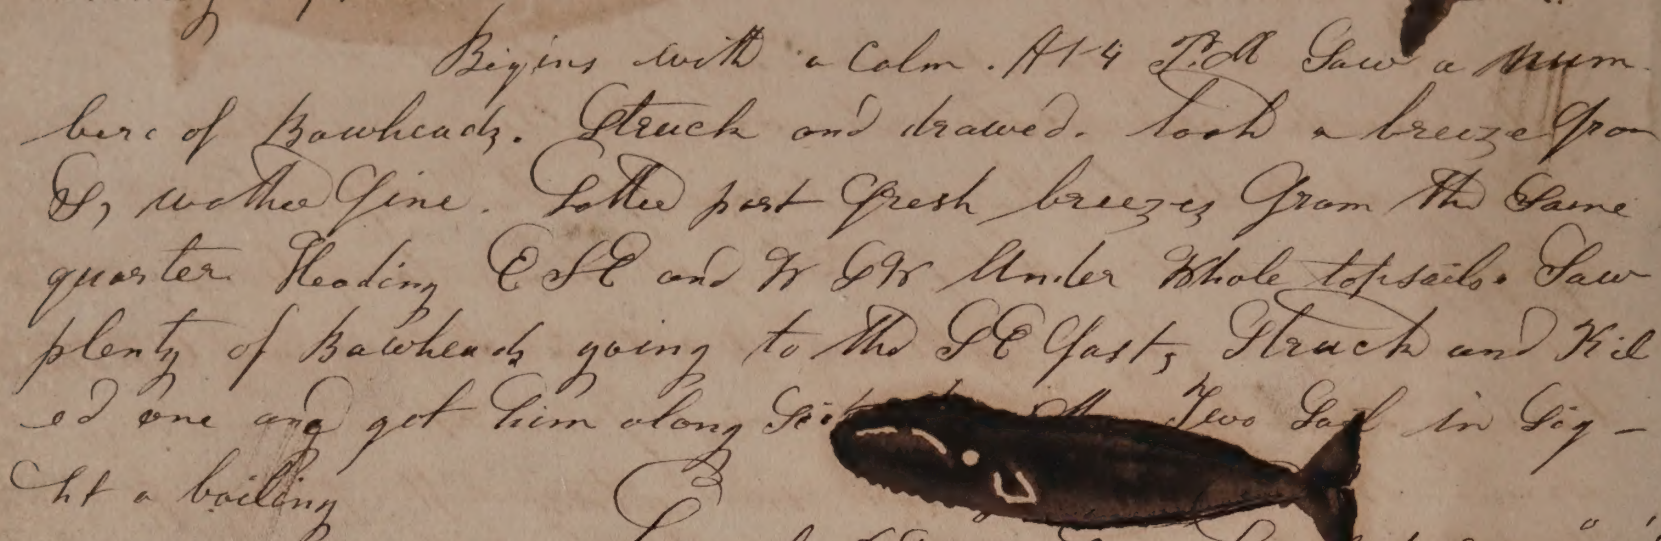 Begins with a Calm. At 4 P.M Saw a num
bere of Bawheads. Struck and drawed. took a breeze from
S, wather fine. Latter part fresh breezes from the Same
quarter Heading ESE and W SW Under Whole topsails. Saw
plenty of Bawheads going to the SE fast, Struck and Kil
ed one and got him along Two Sail in Sig-
ht a boiling